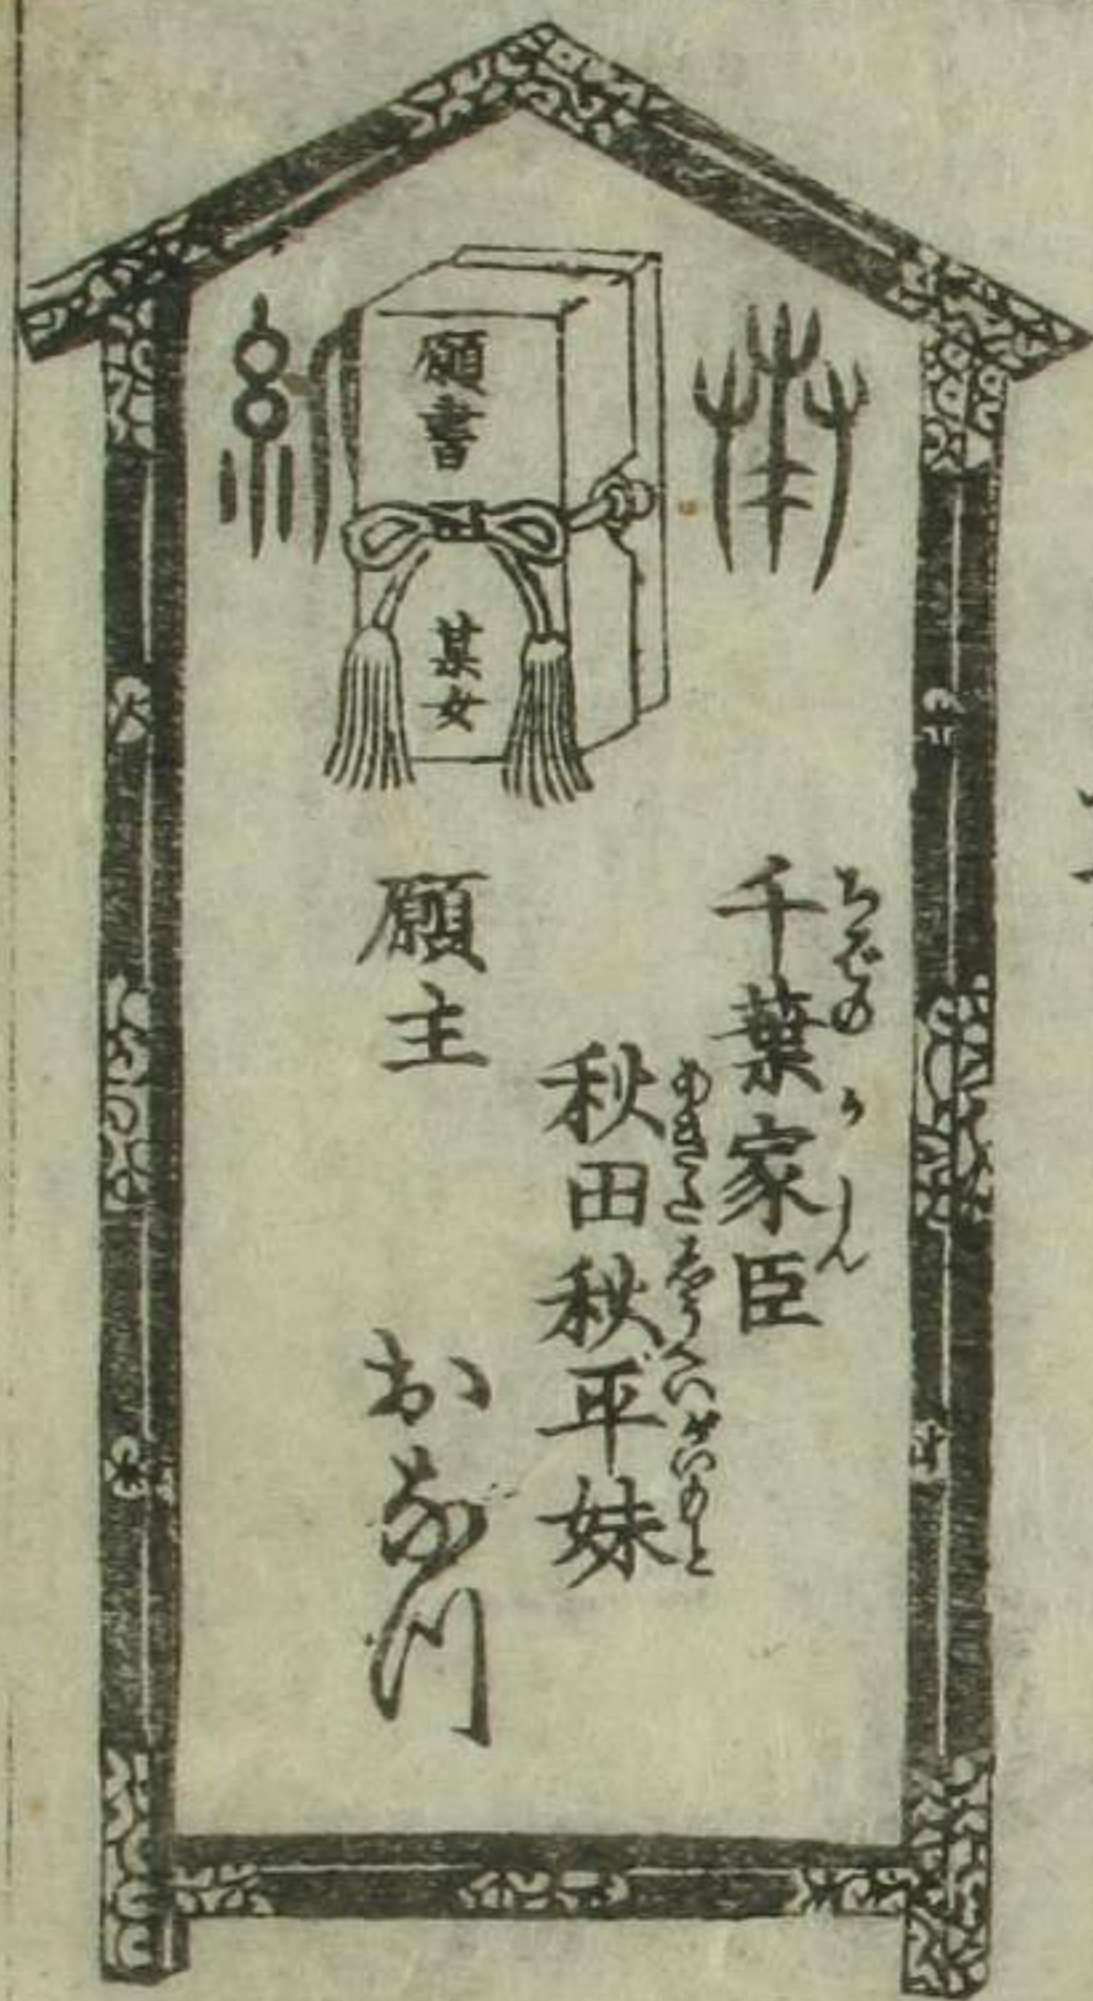 奉納
願書
某女
千葉家臣
ちばのかしん
秋田秋平妹
あきたしうへいがいもと
願主 おなつ